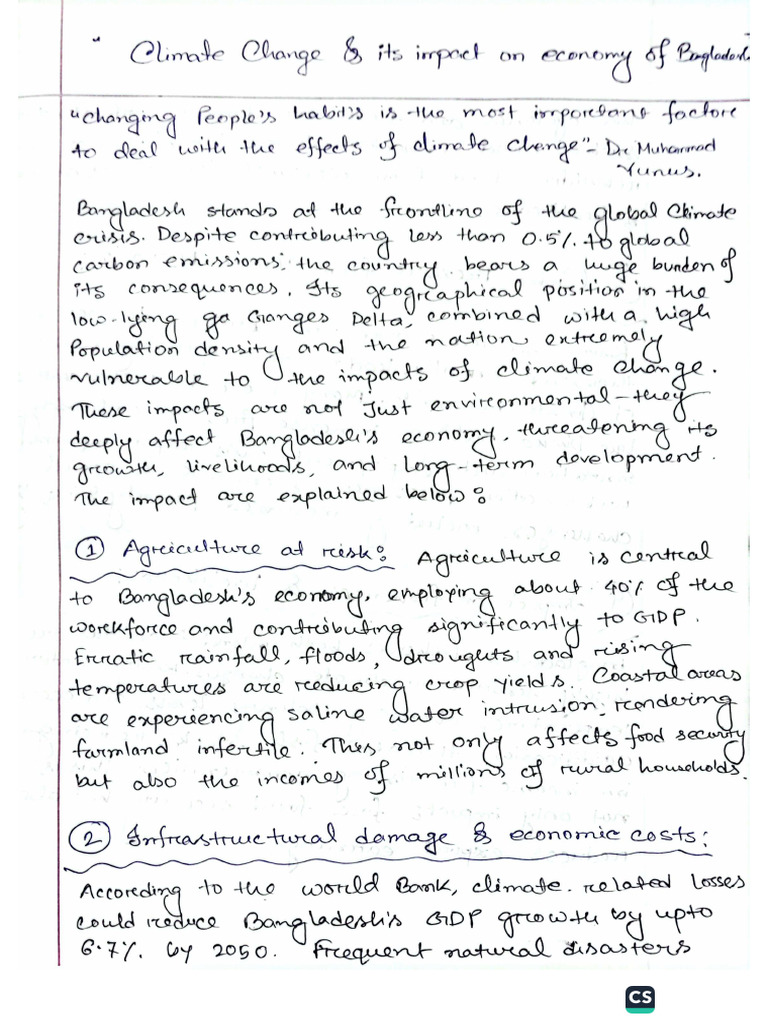 " Climate Change & its impact on economy of Bangladesh
"Changing People's habits is the most important factor
to deal with the effects of climate change"- Dr Muhammad
Yunus.
Bangladesh stands at the frontline of the global Climate
crisis. Despite contributing less than 0.5% to global
carbon emissions, the country bears a huge burden of
its consequences. Its geographical position in the
low-lying ga Ganges Delta, combined with a high
Population density and the nation extremely
vulnerable to the impacts of climate change.
These impacts are not Just environmental - they
deeply affect Bangladesh's economy, threatening its
growth, livelihoods, and Long-term development.
The impact are explained below:
① Agriculture at risk: Agriculture is central
to Bangladesh's economy, employing about 40% of the
workforce and contributing significantly to GDP.
Erratic rainfall, floods, droughts and rising
temperatures are reducing crop yields. Coastal areas
are experiencing saline water intrusion, rendering
farmland infertile. This not only affects food security
but also the incomes of millions of rural households.
② Infrastructural damage & economic costs:
According to the World Bank, climate-related losses
could reduce Bangladesh's GDP growth by upto
6.7% by 2050. Frequent natural disasters
CS